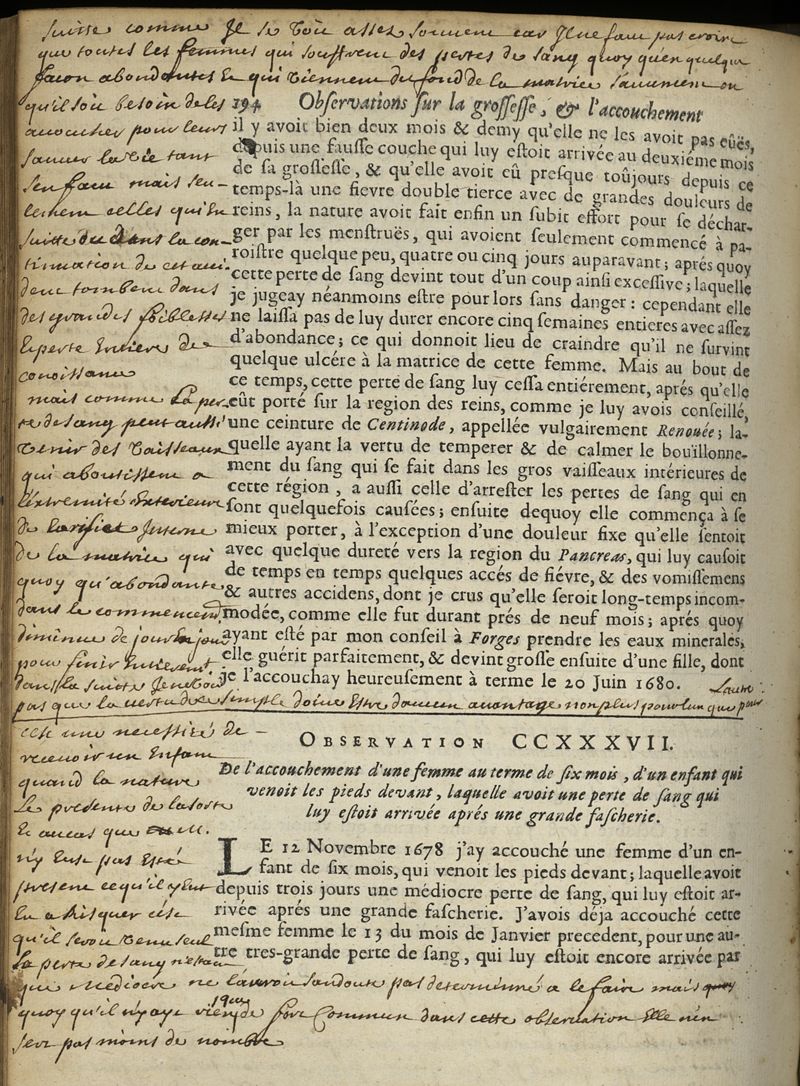 suitte comme Je le Voie assez souvent car Il ne faut pas croire
que toutes les femmes qui souffrent des pertes de sang quoy qu'en quelque
facon abondantes & qui viennent du fond de la matrice
qu'il soit besoin de les
accoucher pour leurs
sauver la Vie tant
s'en faut mais seu-
lement celles qui En
suitte dans la con-
tinuation de cet acci-
dent tombent dans
des grandes foiblesses
& perte Entiere de
conoissance
mais comme la per-
te de sang peut aussi
Venir des Vaisseaux
qui aboutissent a
l'extremité Exterieure
de l'orifice Interne
de la matrice qui
quoy qu'abondante
dans le commencem.
diminue de jour En jour
pour finir Entierem.t
dans la suitte Je ne Voie
pas que la vertu de ce simple doive Estre
194 Observations sur la grossesse, & l'accouchement
il y avoit bien deux mois & demy qu'elle ne les avoit pas eûës,
depuis une fausse couche qui luy estoit arrivée au deuxiéme mois
de sa grossesse, & qu'elle avoit eû presque toûjours depuis ce
temps-là une fievre double tierce avec de grandes douleurs de
reins, la nature avoit fait enfin un subit effort pour se déchar-
ger par les menstruës, qui avoient seulement commencé à pa-
roistre quelque peu, quatre ou cinq jours auparavant; aprés quoy
cette perte de sang devint tout d'un coup ainsi excessive; laquelle
je jugeay néanmoins estre pour lors sans danger: cependant elle
ne laissa pas de luy durer encore cinq semaines entieres avec assez
d'abondance; ce qui donnoit lieu de craindre qu'il ne survint
quelque ulcére à la matrice de cette femme. Mais au bout de
ce temps, cette perte de sang luy cessa entiérement, aprés qu'elle
eût porté sur la region des reins, comme je luy avois conseillé,
une ceinture de Centinode, appellée vulgairement Renouée; la-
quelle ayant la vertu de temperer & de calmer le boüillonne-
ment du sang qui se fait dans les gros vaisseaux intérieures de
cette région, a aussi celle d'arrester les pertes de sang qui en
sont quelquefois causées; ensuite dequoy elle commença à se
mieux porter, à l'exception d'une douleur fixe qu'elle sentoit
avec quelque dureté vers la region du Pancreas, qui luy causoit
de temps en temps quelques accés de fiévre, & des vomissemens
& autres accidens, dont je crus qu'elle seroit long-temps incom-
modée, comme elle fut durant prés de neuf mois; aprés quoy
ayant esté par mon conseil à Forges prendre les eaux minerales,
elle guérit parfaitement, & devint grosse ensuite d'une fille, dont
je l'accouchay heureusement à terme le 20 Juin 1680.
OBSERVATION CCXXXVII.
De l'accouchement d'une femme au terme de six mois, d'un enfant qui
venoit les pieds devant, laquelle avoit une perte de sang qui
luy estoit arrivée aprés une grande fascherie.
LE 12 Novembre 1678 j'ay accouché une femme d'un en-
fant de six mois, qui venoit les pieds devant; laquelle avoit
depuis trois jours une médiocre perte de sang, qui luy estoit ar-
rivée aprés une grande fascherie. J'avois déja accouché cette
mesme femme le 13 du mois de Janvier precedent, pour une au-
tre tres-grande perte de sang, qui luy estoit encore arrivée par
c'est une necessité de
recevoir un Enfant
quand la nature
le presente de la sorte
& au cas que
n'y Eust pas Esté
present ce qu'il y Eut
Eu a risquer c'est
qu'il seroit Venu seul
la perte de sang n'estant
que mediocre ne l'auroit sans doute pas determinné a le faire mais
quoy qu'il n'y aye rien que de fort Commun dans cette observation Elle n'en
sert pas moins de nombre